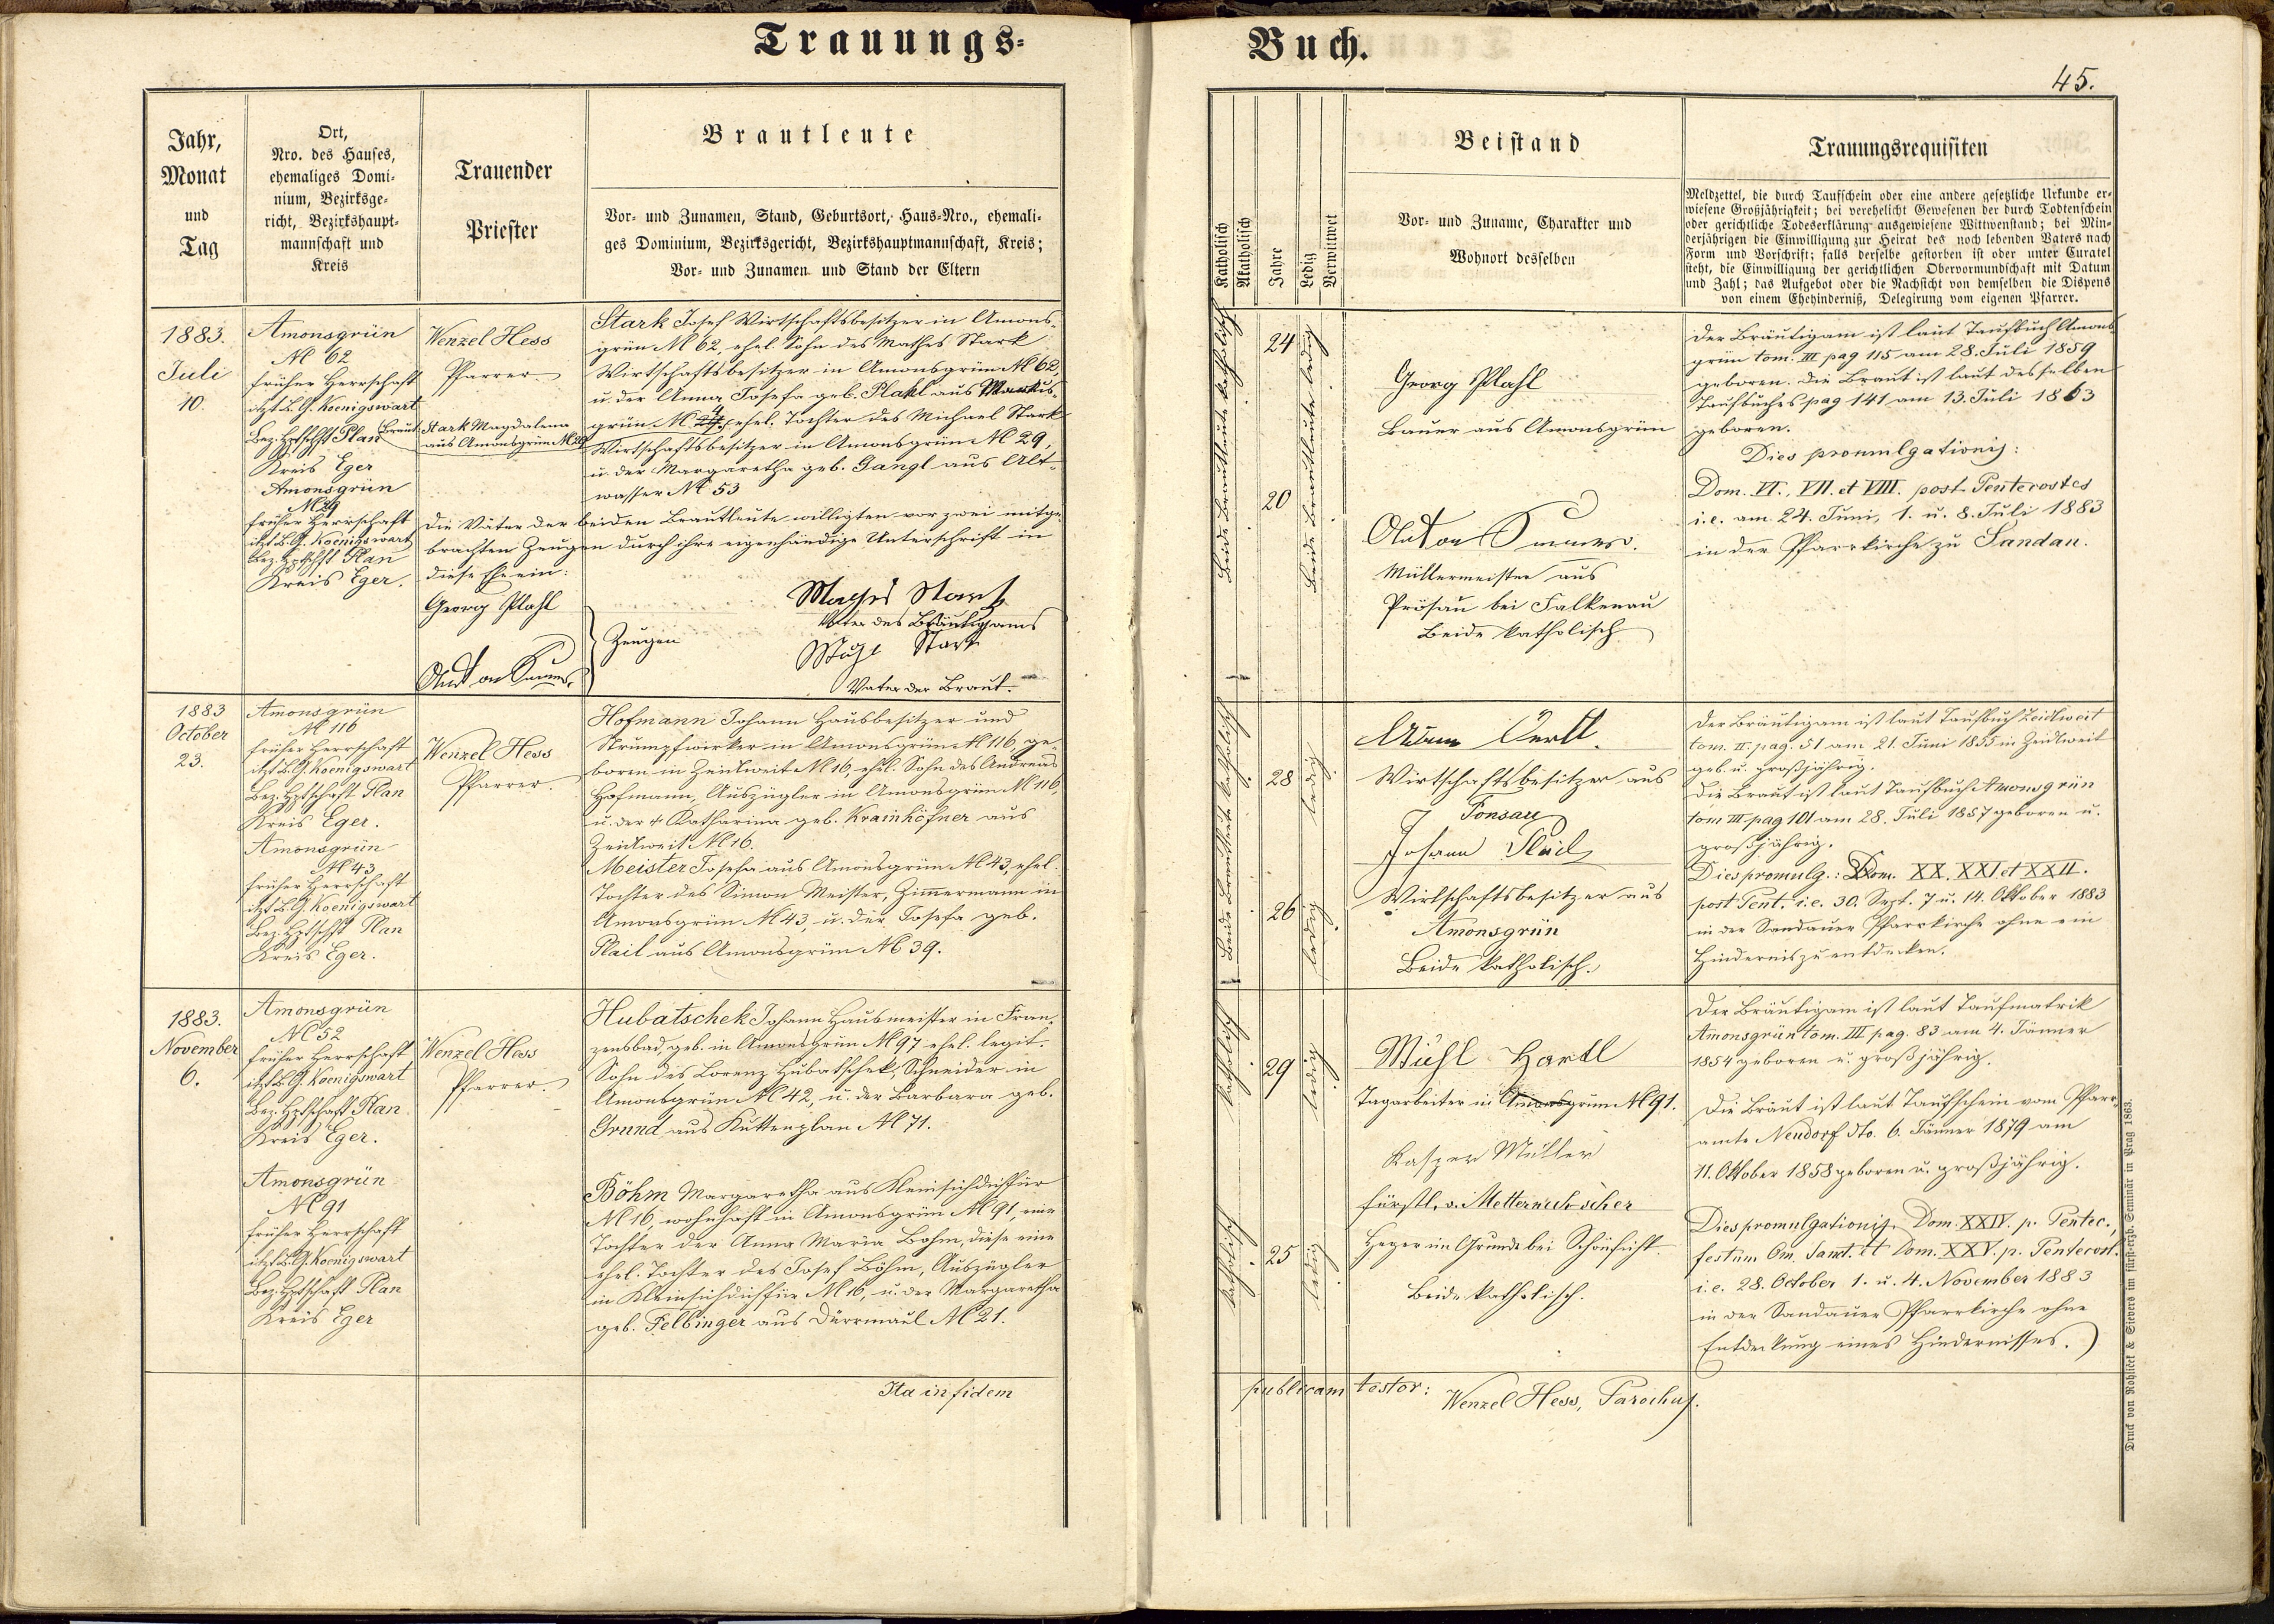 Trauungs-
Jahr,
Monat
und
Tag
Ort,
Nro. des Hauses,
ehemaliges Domi-
nium, Bezirksge-
richt, Bezirkshaupt-
mannschaft und
Kreis
Trauender
Priester
Brautleute
Vor- und Zunamen, Stand, Geburtsort, Haus-Nro., ehemali-
ges Dominium, Bezirksgericht, Bezirkshauptmannschaft, Kreis;
Vor- und Zunamen und Stand der Eltern
1883.
Juli
10.
Amonsgrün
N 62
früher Herrschaft
itzt B. G. Koenigswart
Bez. Hptschft Plan
Kreis Eger
Amonsgrün
N 29
früher Herrschaft
itzt B. G. Koenigswart
Bez. Hptschft Plan
Kreis Eger.
Wenzel Hess
Pfarrer.
Braut Stark Magdalena
aus Amonsgrün N 29
Stark Josef Wirtschaftsbesitzer in Amons-
grün N 62, ehel. Sohn des Mathes Stark
Wirtschaftsbesitzer in Amonsgrün N 62,
u. der Anna Josefa geb. Plahl aus Markus-
grün N 4, ehel. Tochter des Michael Stark
Wirtschaftsbesitzer in Amonsgrün N 29,
u. der Margaretha geb. Gangl aus Alt-
wasser N 53
Die Väter der beiden Brautleute willigten vor zwei mitge-
brachten Zeugen durch ihre eigenhändige Unterschrift in
diese Ehe ein:
Georg Plahl
Zeugen
Mathes Stark
Vater des Bräutigams
Stark
Vater der Braut.
1883
October
23.
Amonsgrün
N 116
früher Herrschaft
itzt B. G. Koenigswart
Bez. Hptschaft Plan
Kreis Eger.
Amonsgrün
N 43
früher Herrschaft
itzt B. G. Koenigswart
Bez. Hptschft Plan
Kreis Eger.
Wenzel Hess
Pfarrer.
Hofmann Johann Hausbesitzer und
Strumpfwirker in Amonsgrün N 116, ge-
boren in Zeidlweit N 16, ehel. Sohn des Andreas
Hofmann, Auszügler in Amonsgrün N 116,
u. der † Katharina geb. Krainhöfner aus
Zeidlweit N 16.
Meister Josefa aus Amonsgrün N 43, ehel.
Tochter des Simon Meister, Zimmermann in
Amonsgrün N 43, u. der Josefa geb.
Plail aus Amonsgrün N 39.
1883.
November
6.
Amonsgrün
N 52
früher Herrschaft
itzt B. G. Koenigswart
Bez. Hptschaft Plan
Kreis Eger.
Amonsgrün
N 91
früher Herrschaft
itzt B. G. Koenigswart
Bez. Hptschaft Plan
Kreis Eger
Wenzel Hess
Pfarrer.
Hubatschek Johann Hausmeister in Fran-
zensbad, geb. in Amonsgrün N 97 ehel. legit.
Sohn des Lorenz Hubatschek, Schneider in
Amonsgrün N 42, u. der Barbara geb.
Grund aus Kuttenplan N 71.
Böhm Margaretha aus Kleinsichdichfür
N 16, wohnhaft in Amonsgrün N 91, eine
Tochter der Anna Maria Böhm, diese eine
ehel. Tochter des Josef Böhm, Auszügler
in Kleinsichdichfür N 16, u. der Margaretha
geb. Felbinger aus Dürrmaul N 21.
Ita in fidem
Buch.
45.
Katholisch
Akatholisch
Jahre
Ledig
Verwittwet
Beistand
Vor- und Zuname, Charakter und
Wohnort desselben
Trauungsrequisiten
Meldzettel, die durch Taufschein oder eine andere gesetzliche Urkunde er-
wiesene Großjährigkeit; bei verehelicht Gewesenen der durch Todtenschein
oder gerichtliche Todeserklärung ausgewiesene Wittwenstand; bei Min-
derjährigen die Einwilligung zur Heirat des noch lebenden Vaters nach
Form und Vorschrift; falls derselbe gestorben ist oder unter Curatel
steht, die Einwilligung der gerichtlichen Obervormundschaft mit Datum
und Zahl; das Aufgebot oder die Nachsicht von demselben die Dispens
von einem Ehehinderniß, Delegirung vom eigenen Pfarrer.
Beide Brautleute katholisch
24
20
Beide Brautleute ledig
Georg Plahl
Bauer aus Amonsgrün
Anton
Müllermeister aus
Prösau bei Falkenau
Beide katholisch
Der Bräutigam ist laut Taufbuch Amons-
grün tom. III pag 115 am 28. Juli 1859
geboren. Die Braut ist laut desselben
Taufbuches pag 141 am 13. Juli 1863
geboren.
Dies promulgationis:
Dom. VI., VII. et VIII. post. Pentecostes
i.e. am 24. Juni, 1. u. 8. Juli 1883
in der Pfarrkirche zu Sandau.
Beide Brautleute katholisch
28
26
ledig
ledig
Adam Oertl
Wirtschaftsbesitzer aus
Ponsau
Johann Plail
Wirtschaftsbesitzer aus
Amonsgrün
Beide katholisch.
Der Bräutigam ist laut Taufbuch Zeidlweit
tom. II. pag. 51 am 21. Juni 1855 in Zeidlweit
geb. u. großjährig.
Die Braut ist laut Taufbuch Amonsgrün
tom III pag 101 am 28. Juli 1857 geboren u.
großjährig.
Dies promulg.: Dom. XX. XXI et XXII.
post Pent. i.e. 30. Sept. 7 u. 14. Oktober 1883
in der Sandauer Pfarrkirche ohne ein
Hindernis zu entdecken.
katholisch
29
ledig
katholisch
25
ledig
Hartl
Tagarbeiter in Amonsgrün N 91.
Kasper Müller
fürstl. v. Metternich'scher
Heger im Grunde bei Schönficht.
Beide katholisch.
Der Bräutigam ist laut Taufmatrik
Amonsgrün tom. III pag. 83 am 4. Jänner
1854 geboren u. großjährig.
Die Braut ist laut Taufschein vom Pfarr-
amte Neudorf dto. 6. Jänner 1879 am
11. Oktober 1858 geboren u. großjährig.
Dies promulgationis. Dom. XXIV. p. Pentec.,
festum Om. Sanct. et Dom. XXV. p. Pentecost.
i.e. 28. October 1. u. 4. November 1883
in der Sandauer Pfarrkirche ohne
Entdeckung eines Hindernisses.
publicam testor:
Wenzel Hess, Parochus.
Druck von Rohliček & Sievers im fürst-erzb. Seminär in Prag 1863.